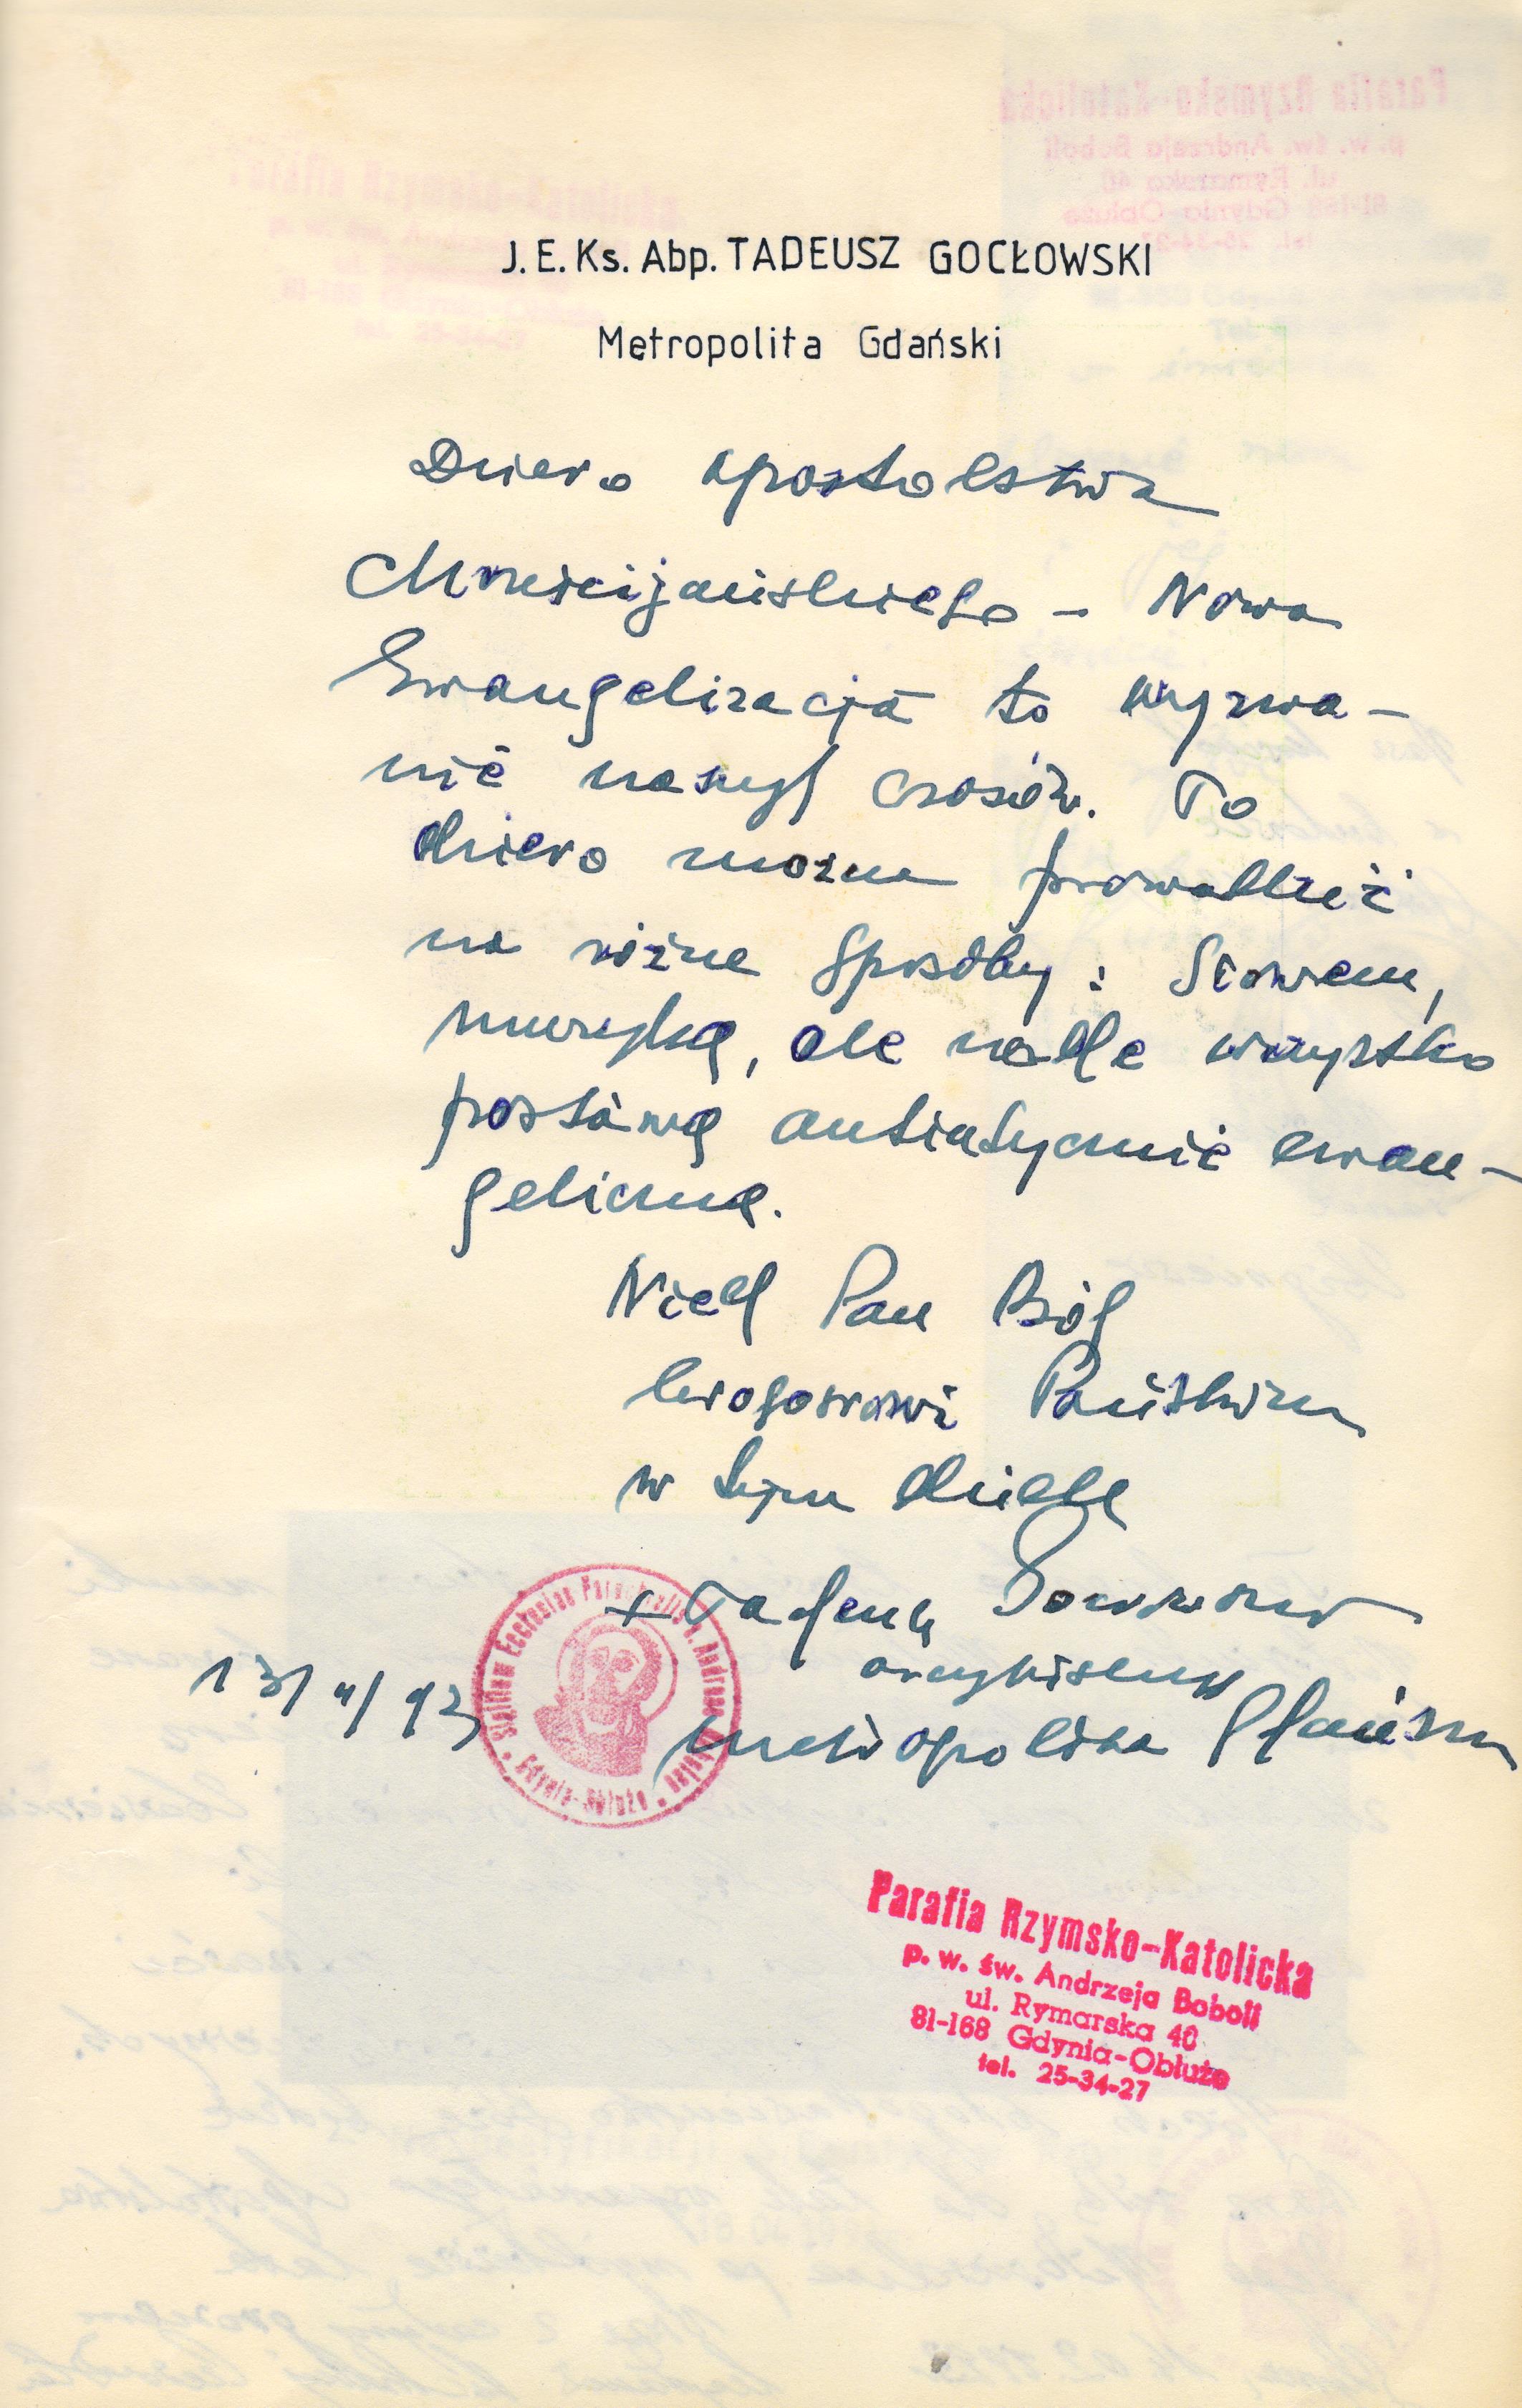 J. E. Ks. Abp. TADEUSZ GOCŁOWSKI
Metropolita Gdański
Dzieło apostolstwa
chrześcijańskiego – Nowa
Ewangelizacja to wyzwa-
nie naszych czasów. To
dzieło można prowadzić
na różne sposoby: Słowem,
muzyką, ale nade wszystko
postawą autentycznie ewan-
geliczną.
Niech Pan Bóg
błogosławi Państwu
w tym dziele
+ Tadeusz Gocłowski
arcybiskup
metropolita Gdański
13/
Sigillum Ecclesiae Parochialis S. Andreae
Gdynia-Obłuże
Parafia Rzymsko-Katolicka
p. w. św. Andrzeja Boboli
ul. Rymarska 40
81-168 Gdynia-Obłuże
tel. 25-34-27